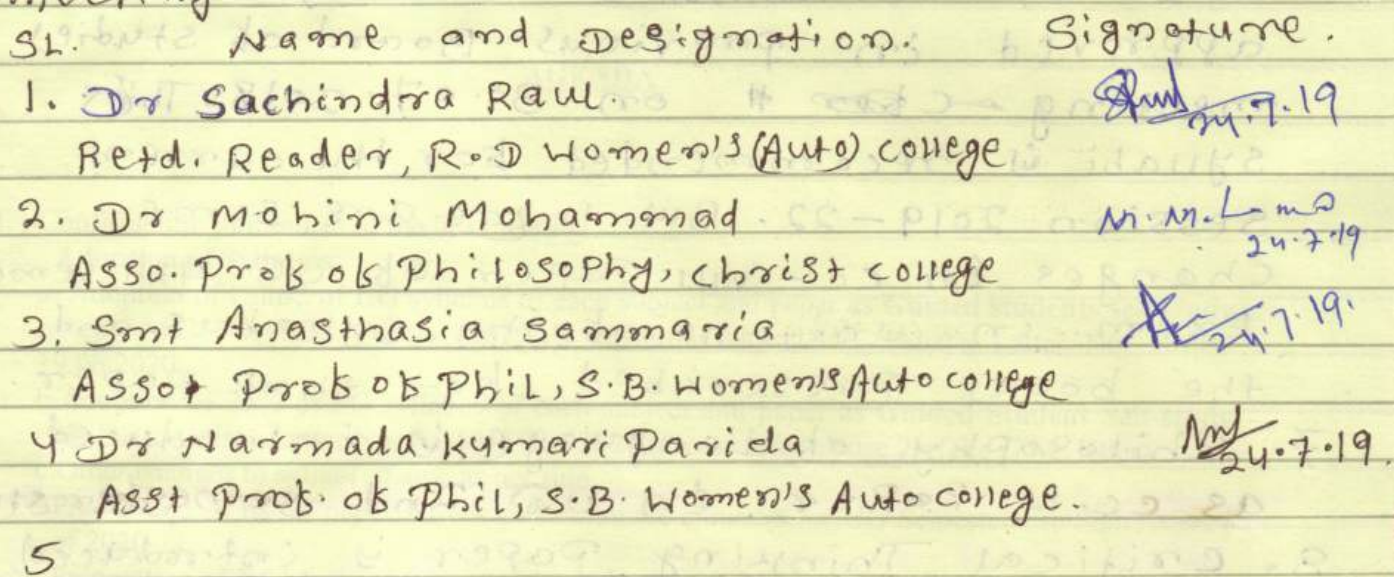 SL. Name and Designation. Signature.
1. Dr Sachindra Raul. 24.7.19
Retd. Reader, R.D Women's (Auto) college
2. Dr Mohini Mohammad
24.7.19
Asso. Prof of Philosophy, Christ college
3. Smt Anasthasia Sammaria 24.7.19.
Asso. Prof of Phil, S.B. Women's Auto college
4 Dr Narmada Kumari Parida 24.7.19.
Asst Prof. of Phil, S.B. Women's Auto college.
5